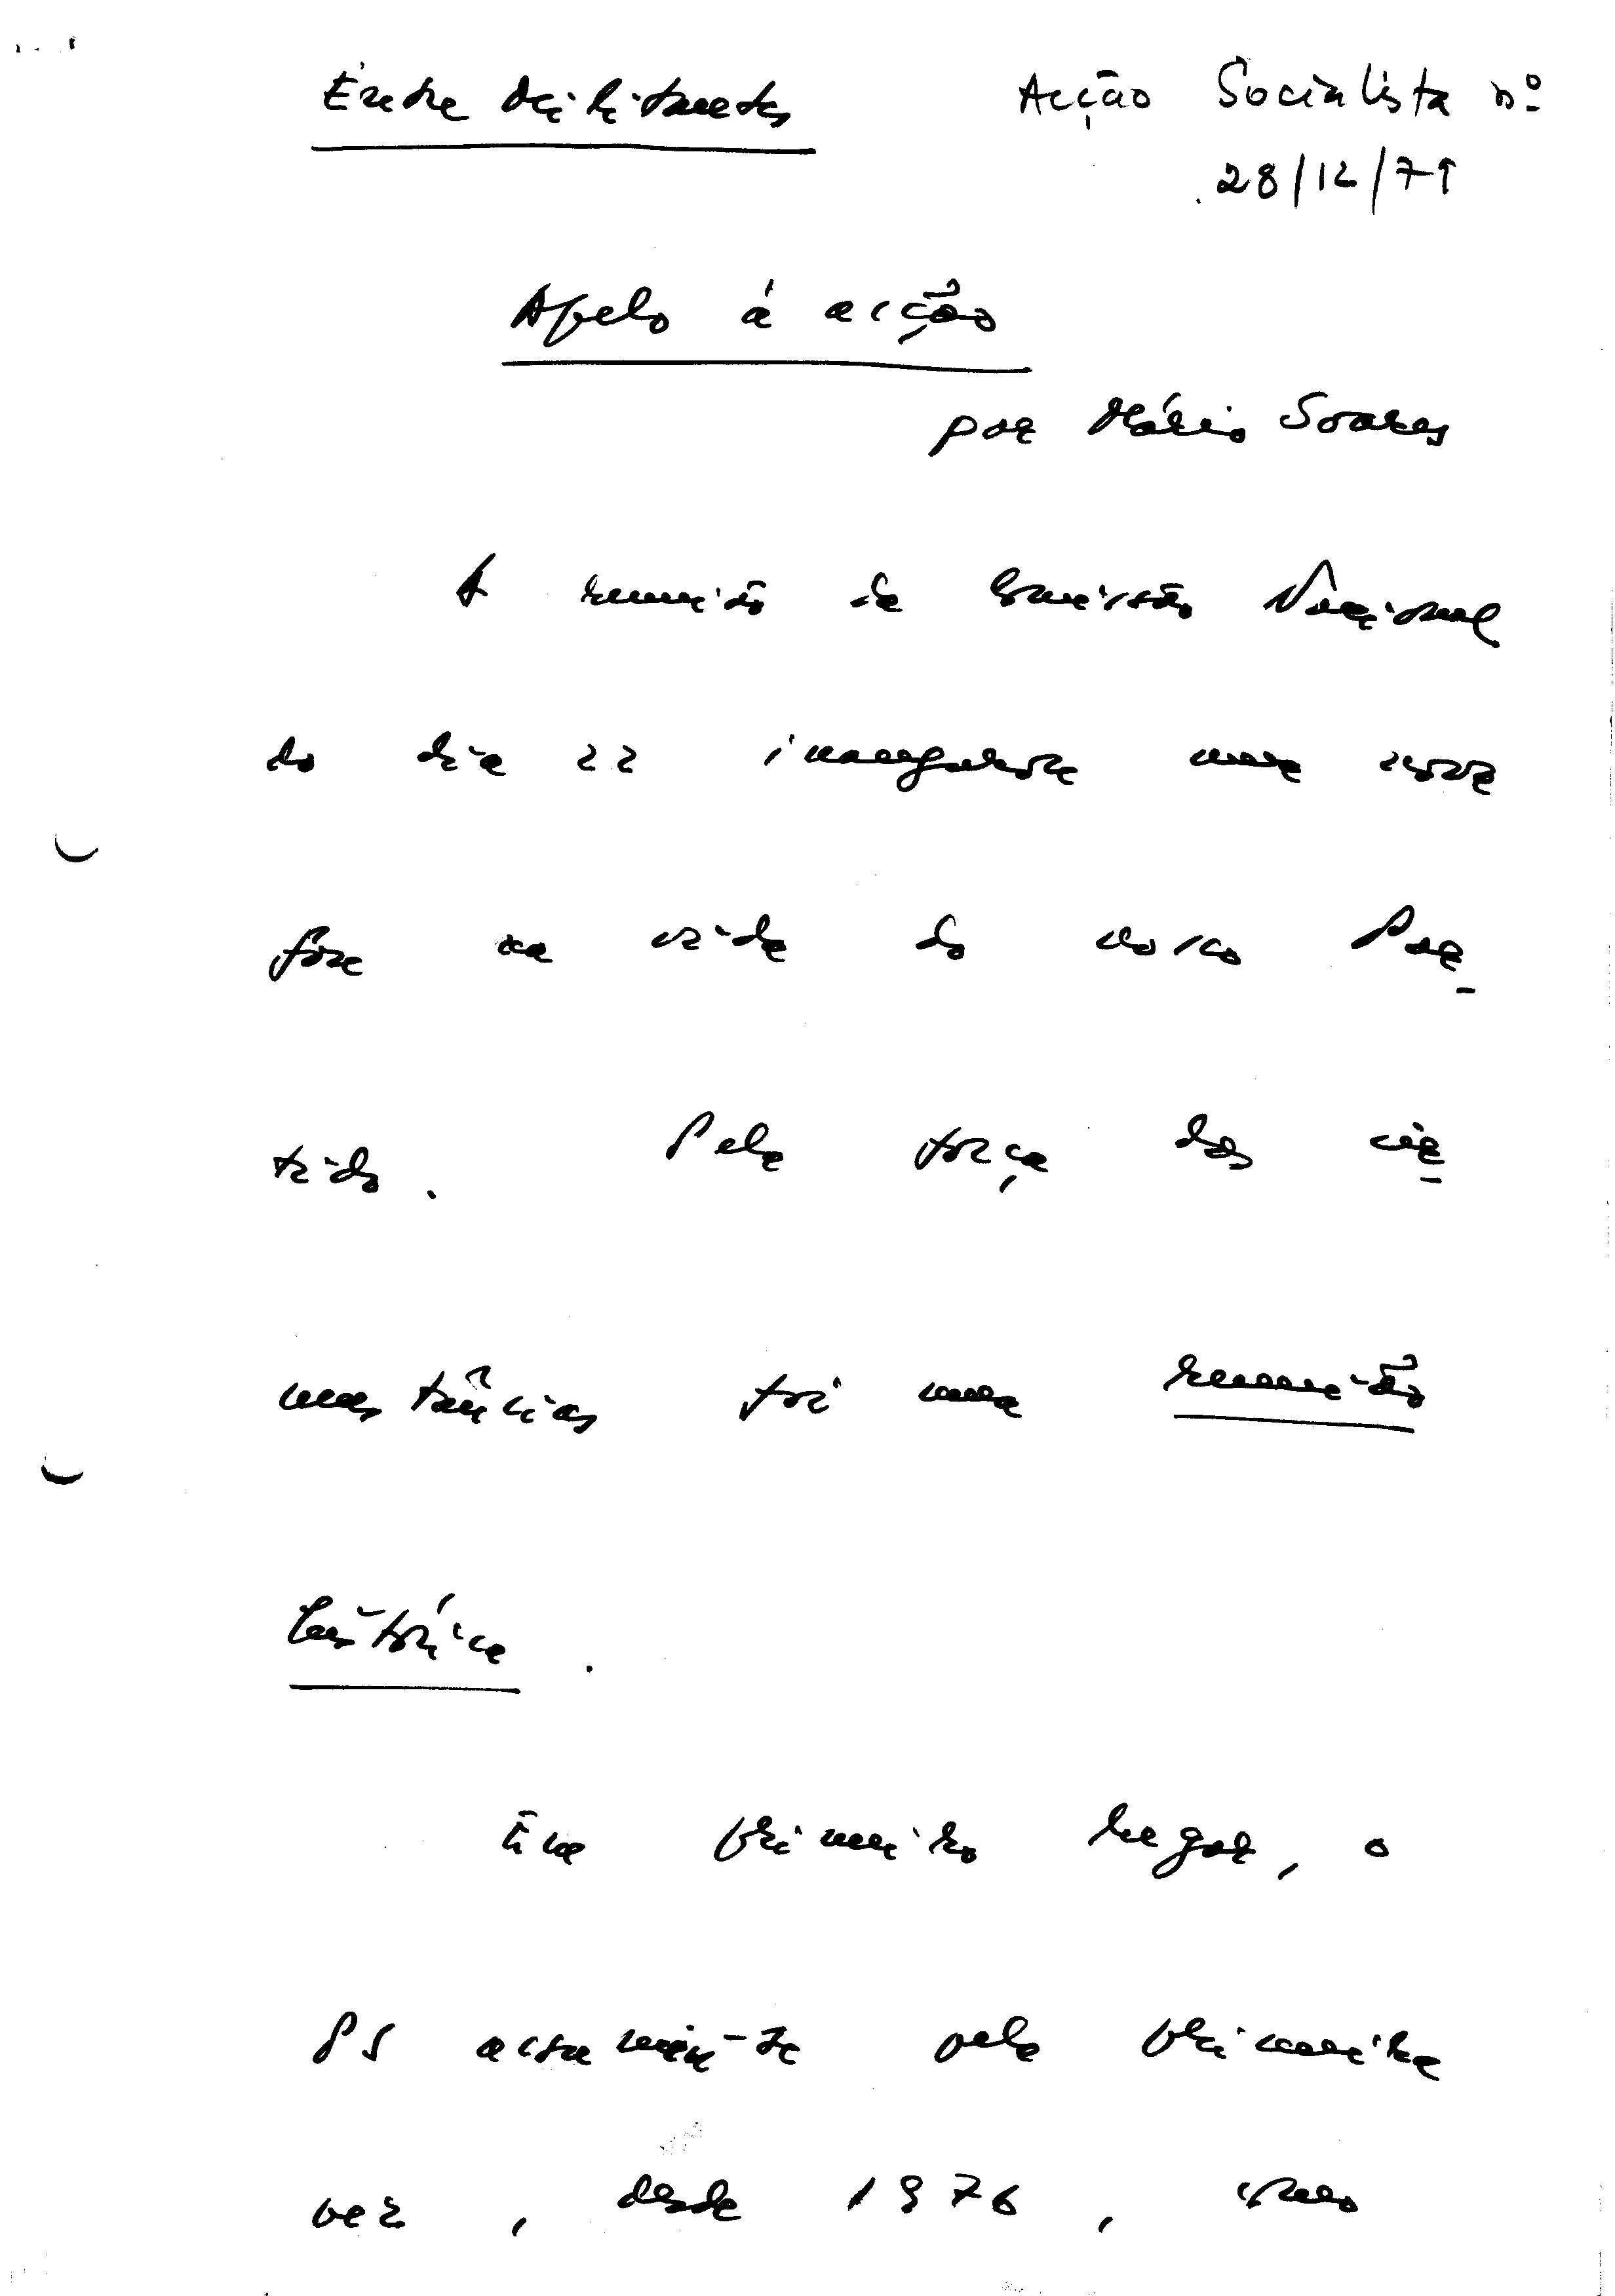 Entre Militantes
Acção Socialista nº
28/12/79
Apelo á acção
por Mário Soares
A reunião da Comissão Nacional
do dia 22 inaugurou uma nova
fase na vida do nosso Par-
tido. Pela força das cir-
cunstâncias foi uma reunião
histórica.
Em primeiro lugar, o
PS assumiu-se pela primeira
vez, desde 1976, como